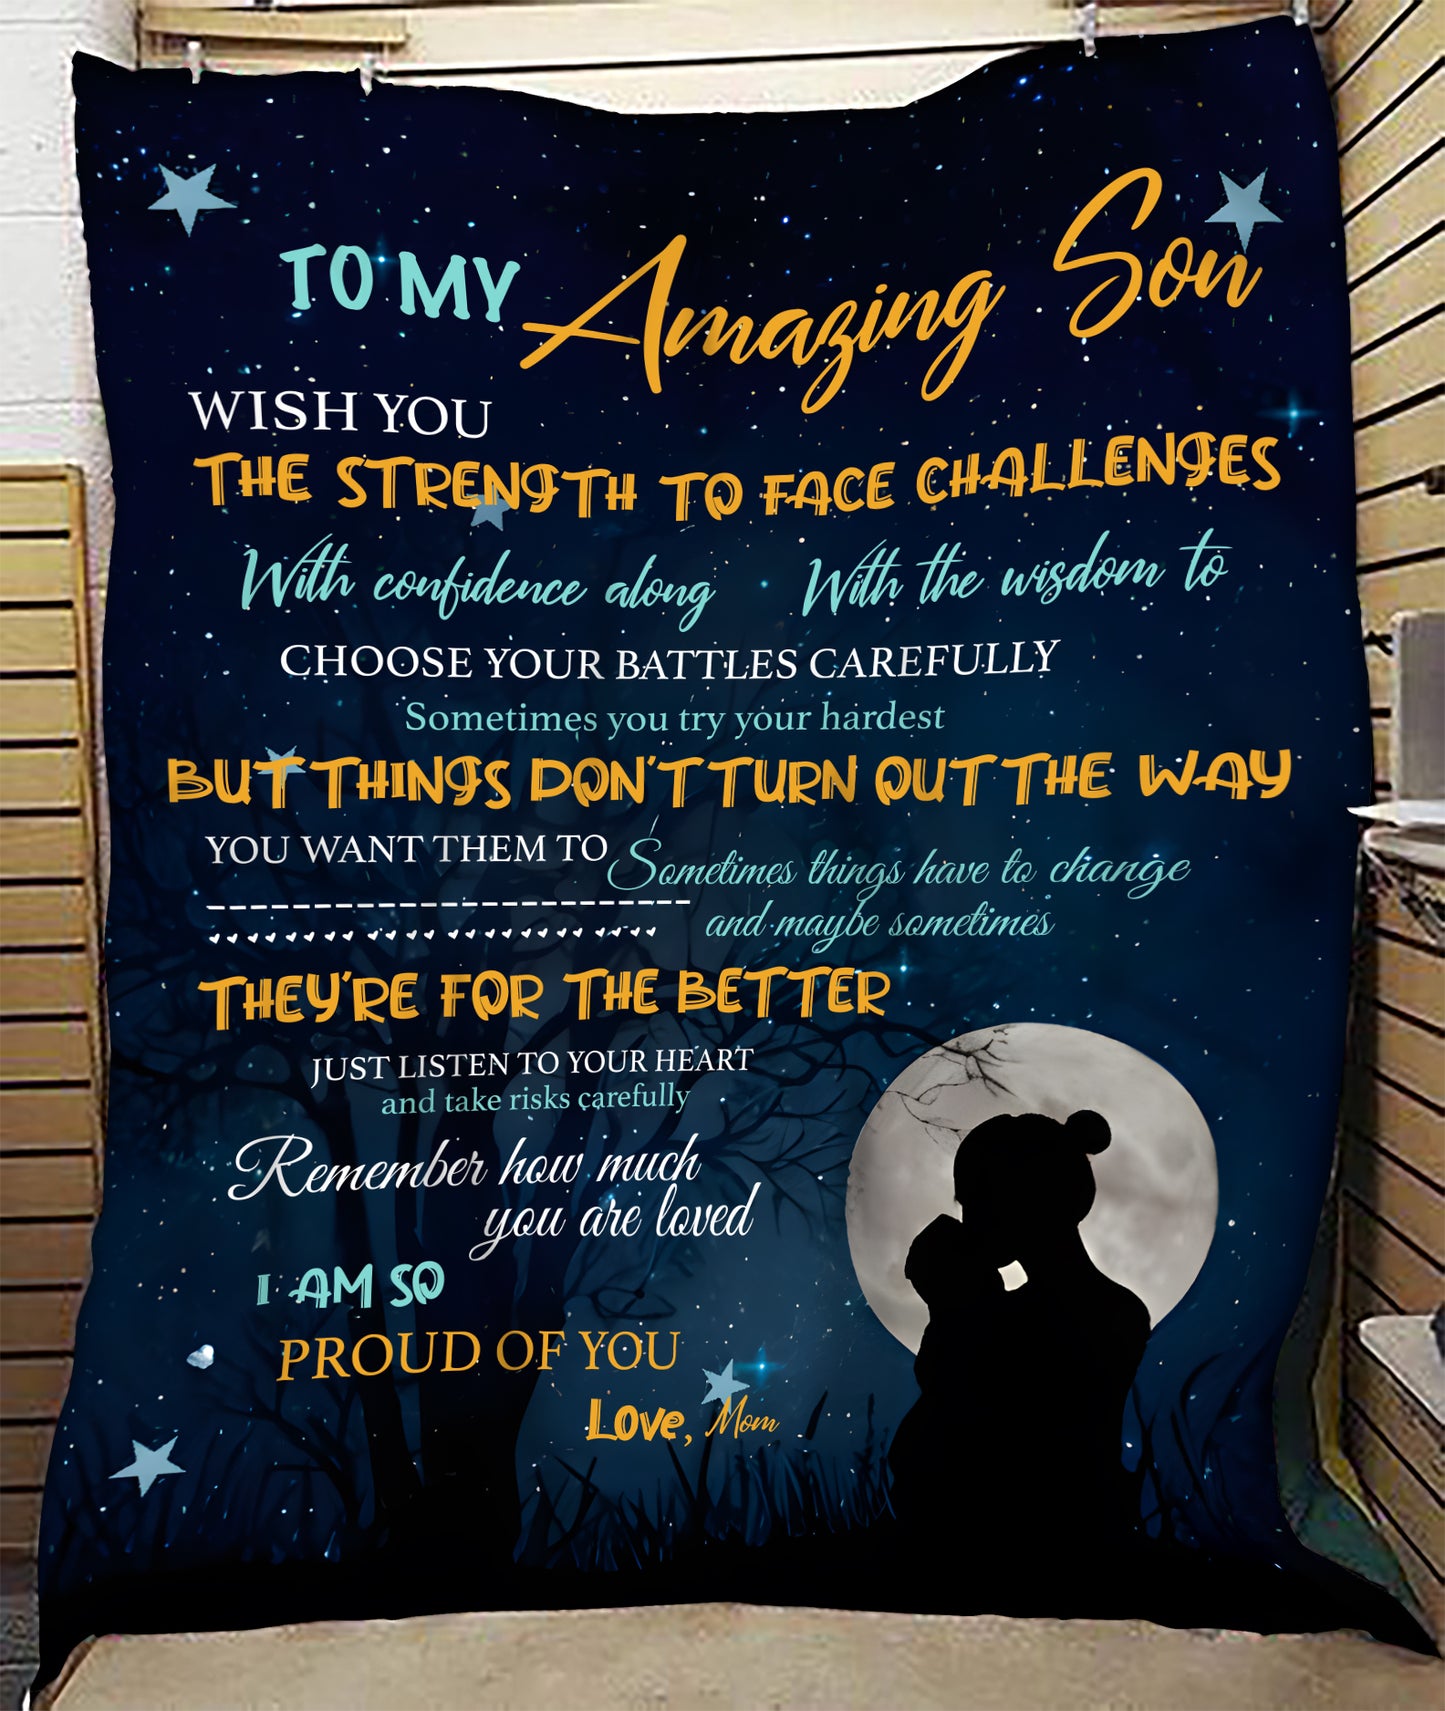 TO MY Amazing Son
WISH YOU
THE STRENGTH TO FACE CHALLENGES
With confidence along With the wisdom to
CHOOSE YOUR BATTLES CAREFULLY
Sometimes you try your hardest
BUT THINGS DON'T TURN OUT THE WAY
YOU WANT THEM TO Sometimes things have to change
and maybe sometimes
THEY'RE FOR THE BETTER
JUST LISTEN TO YOUR HEART
and take risks carefully
Remember how much
you are loved
I AM SO
PROUD OF YOU
LOVE, Mom